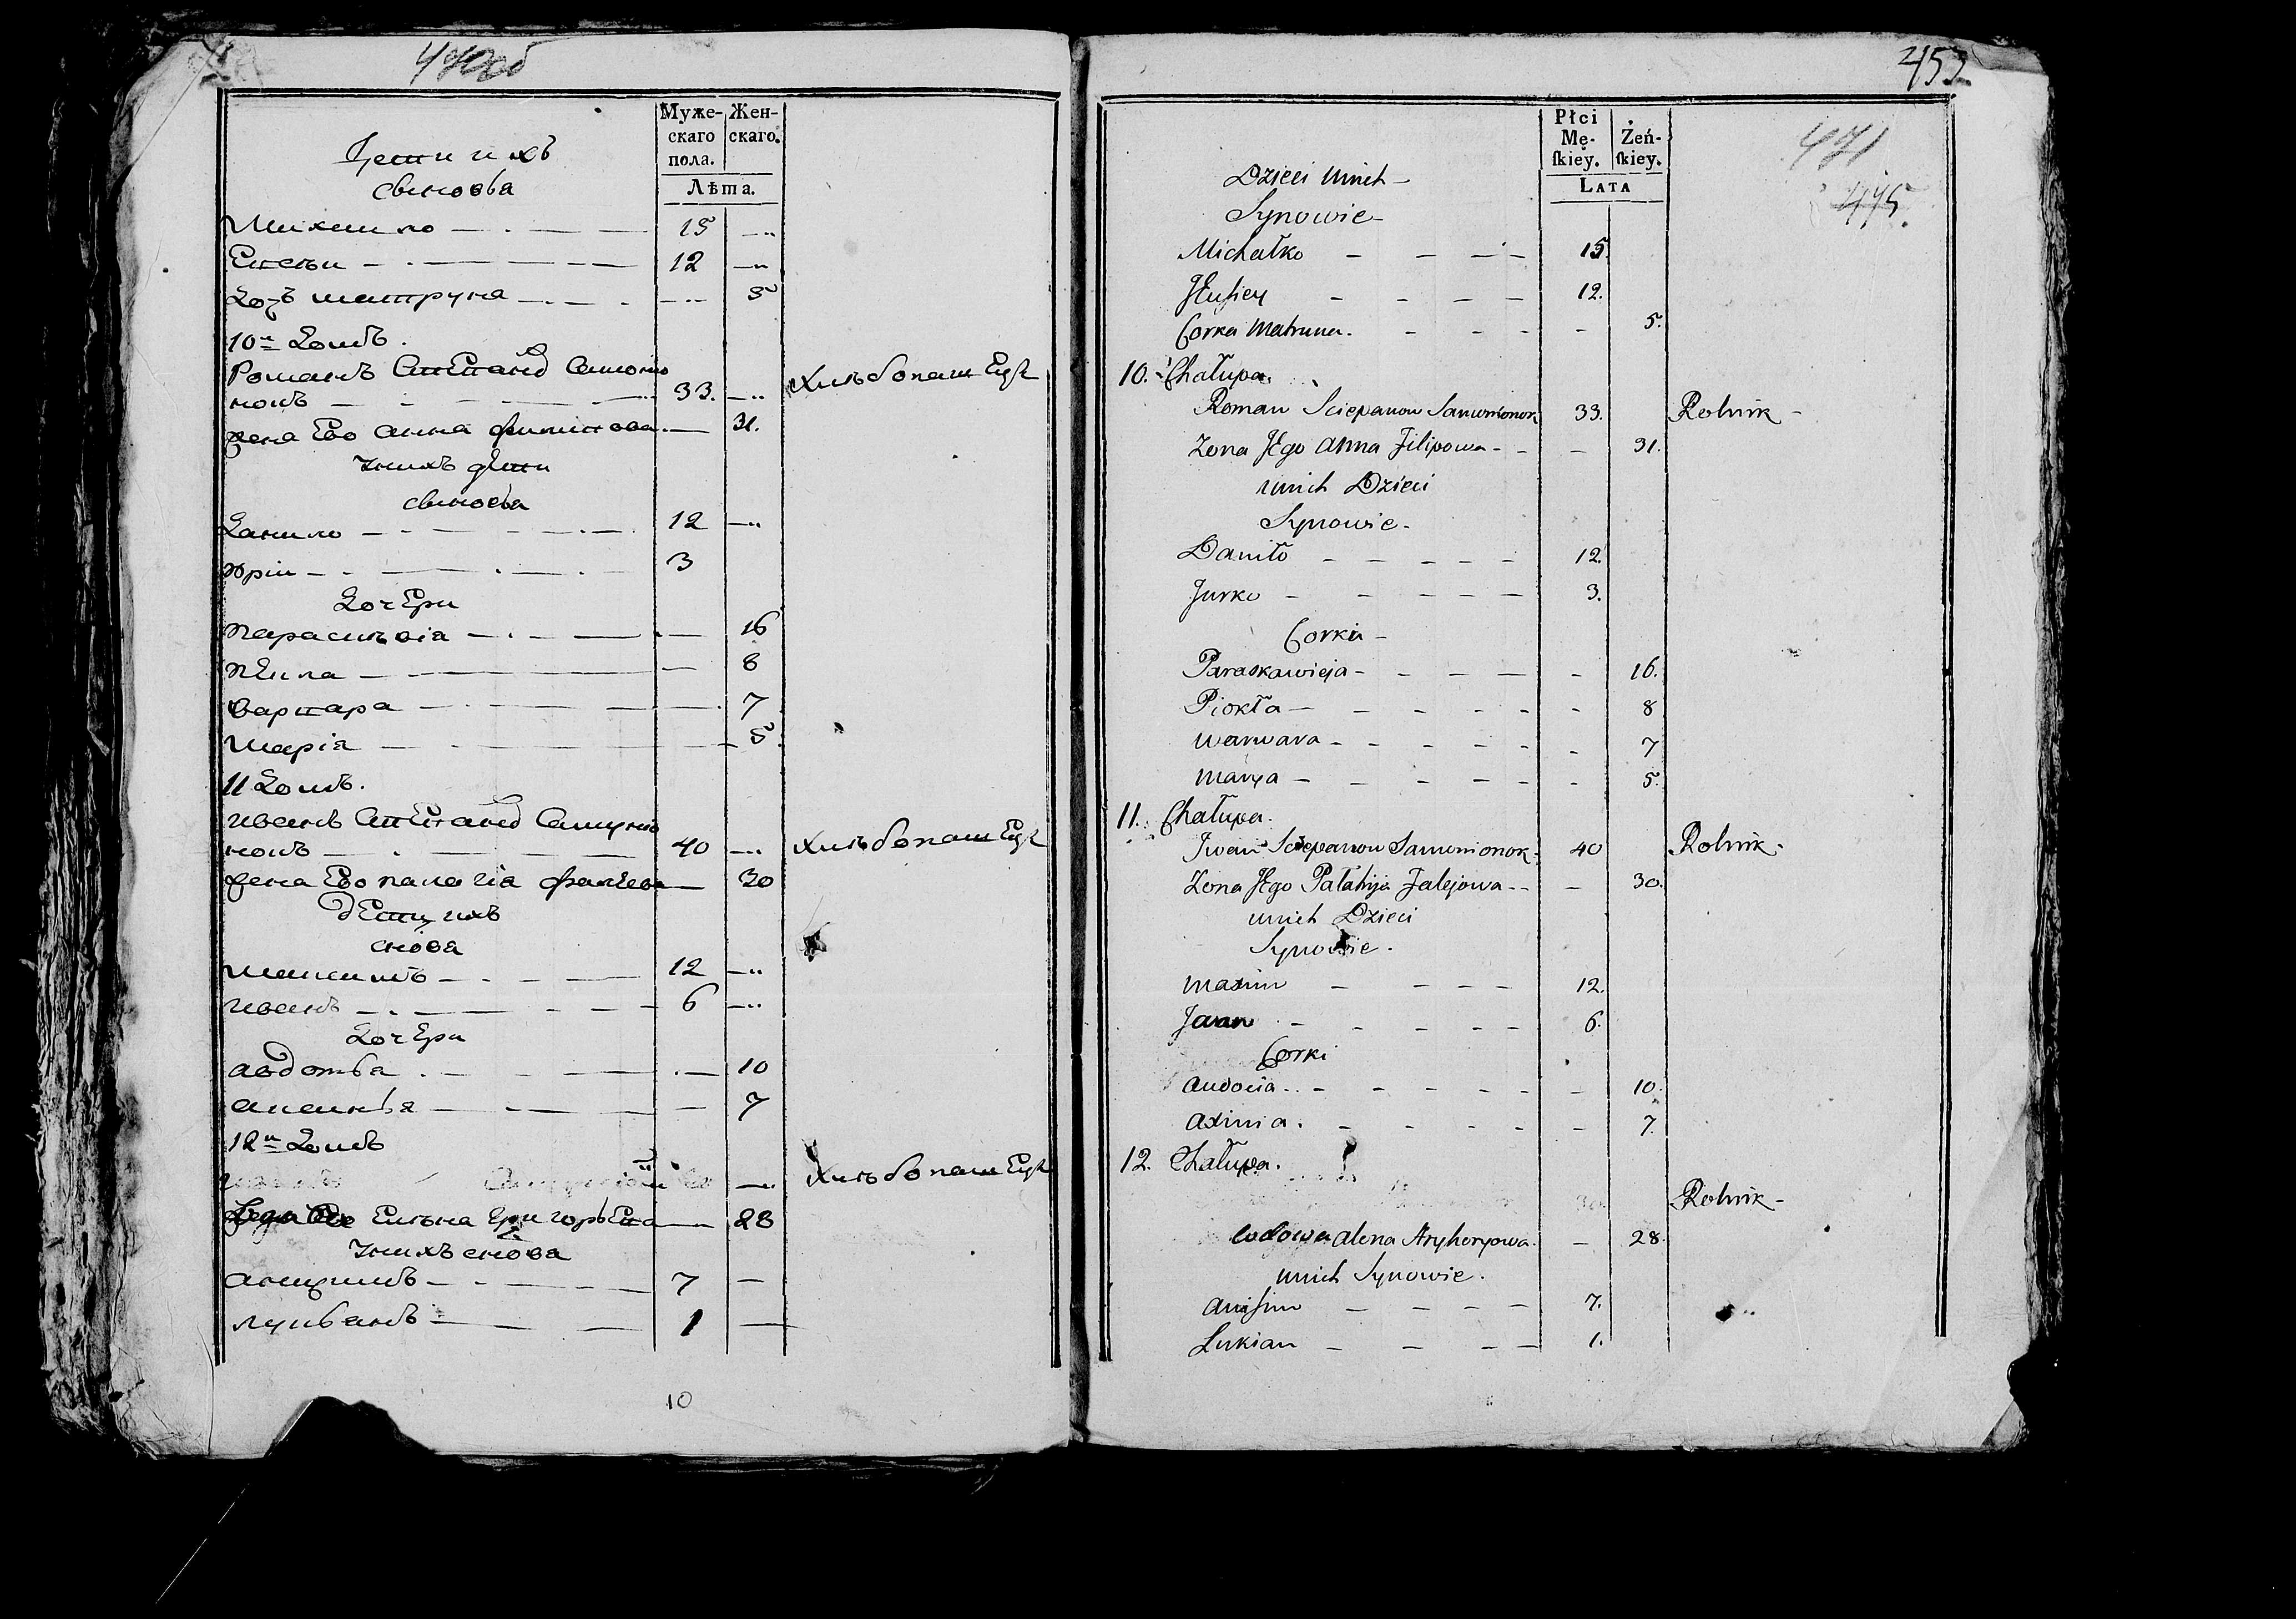 Муже-
скаго
пола.
Жен-
скаго.
Лѣта.
Дети ихъ
сынова
Михаило 15
Елесѣи 12
Дочъ матруна 5
10й Домъ.
Романъ Степановъ Самоню
нокъ 33. хлѣбопашецъ
жена Ево анна филипова 31.
Унихъ дети
сынова
Данило 12
Юріи 3
Дочери
параскѣвіа 16
пекла 8
варвара 7
маріа 5
11 Домъ.
иванъ Степановъ Самуню
нокъ 40 хлѣбопашецъ
жена Ево палагіа фалеева 30
дети ихъ
снова
максимъ 12
иванъ 6
Дочери
авдотьа 10
аксиньа 7
12й Домъ
хлѣбопашецъ
Елѣна Григорьева 28
Унихъ снова
анисимъ 7
лукьанъ 1
10
453
471
475
Płci
Mę-
ſkiey.
Żeń-
ſkiey.
LATA
Dzieci unich
Synowie
Michałko 15.
Jełusiey 12.
Corka Matruna. 5.
10. Chałupa.
Roman Sciepanow Samonionok 33. Rolnik
Zona Jego Anna Filipowa 31.
unich Dzieci
Synowie.
Daniło 12.
Jurko 3.
Corki
Paraskawieja 16.
Piokła 8
Warwara 7
Marya 5.
11. Chałupa.
Jwan Sciepanow Samunionok 40 Rolnik
Zona Jego Pałahija Falejowa 30.
unich Dzieci
Synowie.
Maxim 12.
Jwan 6.
Corki
Audocia 10.
Axinia. 7.
12. Chałupa.
Rolnik
wdowa Alena Hryhoryowa. 28.
unich Synowie.
Anisim 7.
Łukian 1.